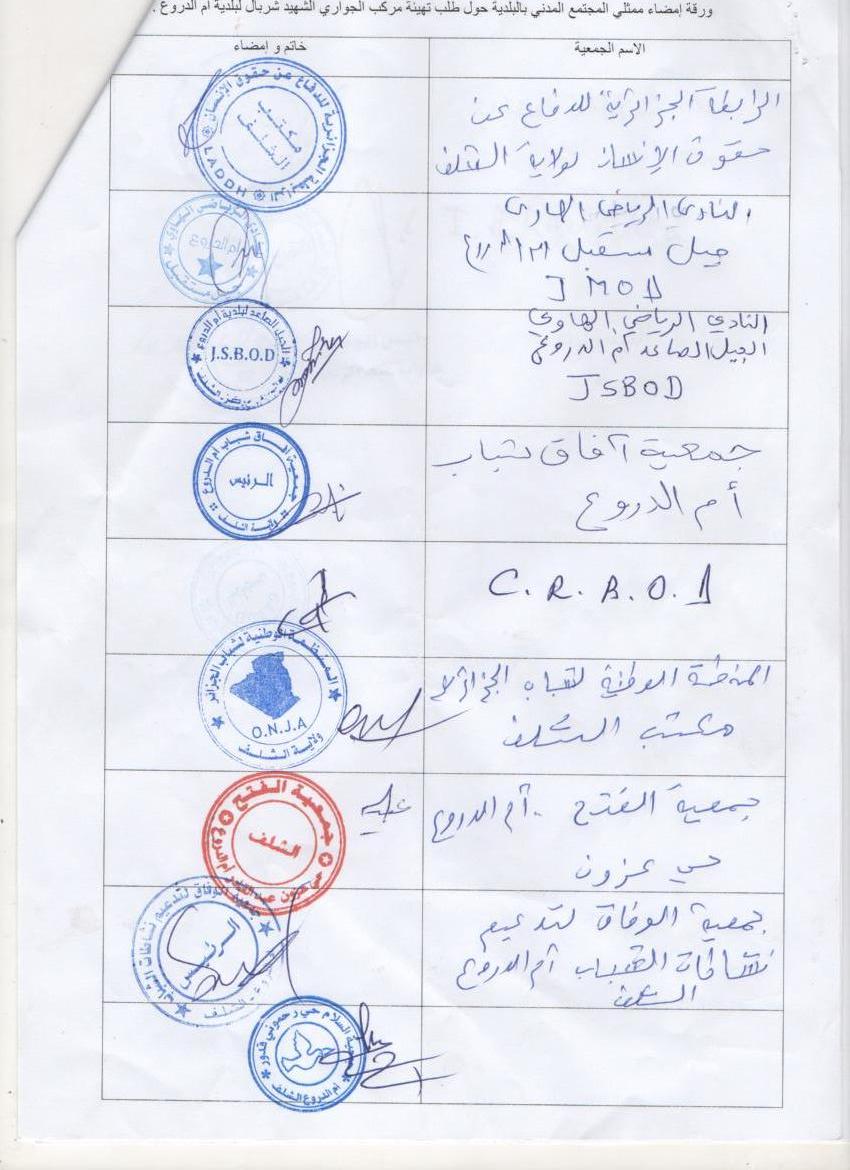 ورقة إمضاء ممثلي المجتمع المدني بالبلدية حول طلب تهيئة مركب الجواري الشهيد شربال لبلدية أم الدروع .
الاسم الجمعية
خاتم و إمضاء
الرابطة الجزائرية للدفاع عن
حقوق الإنسان لولاية الشلف
الرابطة الجزائرية للدفاع عن حقوق الإنسان
مكتب
الشلف
LADDH
النادي الرياضي الهاوي
جيل مستقبل ام الدروع
J M O D
النادي الرياضي الهاوي
أم الدروع
جيل مستقبل
النادي الرياضي الهاوي
الجيل الصاعد أم الدروع
JSBOD
الجيل الصاعد لبلدية أم الدروع
J.S.B.O.D
جمعية آفاق شباب
أم الدروع
جمعية آفاق شباب أم الدروع
الرئيس
ولاية الشلف
C. R. B. O. D
المنظمة الوطنية لشباب الجزائر
مكتب الشلف
المنظمة الوطنية لشباب الجزائر
O.N.J.A
ولاية الشلف
جمعية الفتح أم الدروع
حي عزون
جمعية الفتح
الشلف
حي عزون عبد القادر أم الدروع
جمعية الوفاق لتدعيم
نشاطات الشباب أم الدروع
الشلف
جمعية الوفاق لتدعيم نشاطات الشباب
الرئيس
الشلف
السلام حي رحموني قدور
أم الدروع الشلف